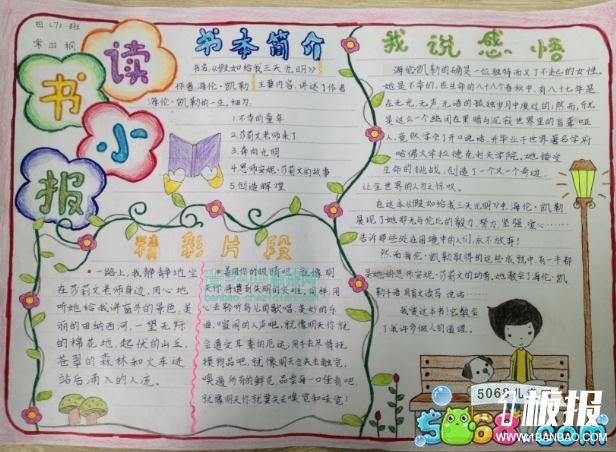 四(7)班
读书小报
书本简介
书名:《假如给我三天光明》
作者:海伦·凯勒 主要内容:讲述了作者
海伦·凯勒的一生,细为
1.不幸的童年
2.莎莉文老师来了
3.奔向光明
4.恩师安妮·莎莉文的故事
5.创造辉煌
精彩片段
一路上,我静静地坐
在莎莉文老师身边,用心地
听她给我讲窗外的景色:美
丽的田纳西河,一望无际
的棉花地,起伏的山丘,
苍翠的森林和火车进
站后涌入的人流。
善用你的眼睛吧,就像明
天你将遭到失明的
去聆听鸟儿的歌唱,美妙的乐
曲,喧闹的人声吧,就像明天你就
会遭受耳聋的厄运,用手去尽情抚
摸物品吧,就像明天会失去触觉,
嗅遍所有的鲜花,品尝每一口佳肴吧,
就像明天你就要失去嗅觉和味觉!
我说感悟
海伦·凯勒的确是一位独特而又了不起的女性。
她是不幸的,在生命的八十八个春秋中,有八十七年是
在无光,无声,无语的孤独岁月中度过的;然而,恰恰
是这么一个幽闭在黑暗与沉寂世界里的盲聋哑
人,竟然学会了开口说话,并毕业于世界著名学府
哈佛大学拉德克利夫学院,她接受
生命的挑战,创造了一个又一个奇迹,
让全世界的人为之惊叹。
在这本《假如给我三天光明》中,海伦·凯勒
展现了她那无与伦比的毅力,努力,坚强,爱心……
告诉那些处在困境中的人们,永不放弃!
然而,海伦·凯勒取得的这些成就,有一半都
是她的恩师安妮·莎莉文的功劳,她教会了海伦·凯
勒手语,用盲文读写,说话……
我爱这本书!它教会了
我许多做人的道理。
1板报
WWW.1BANBAO.COM